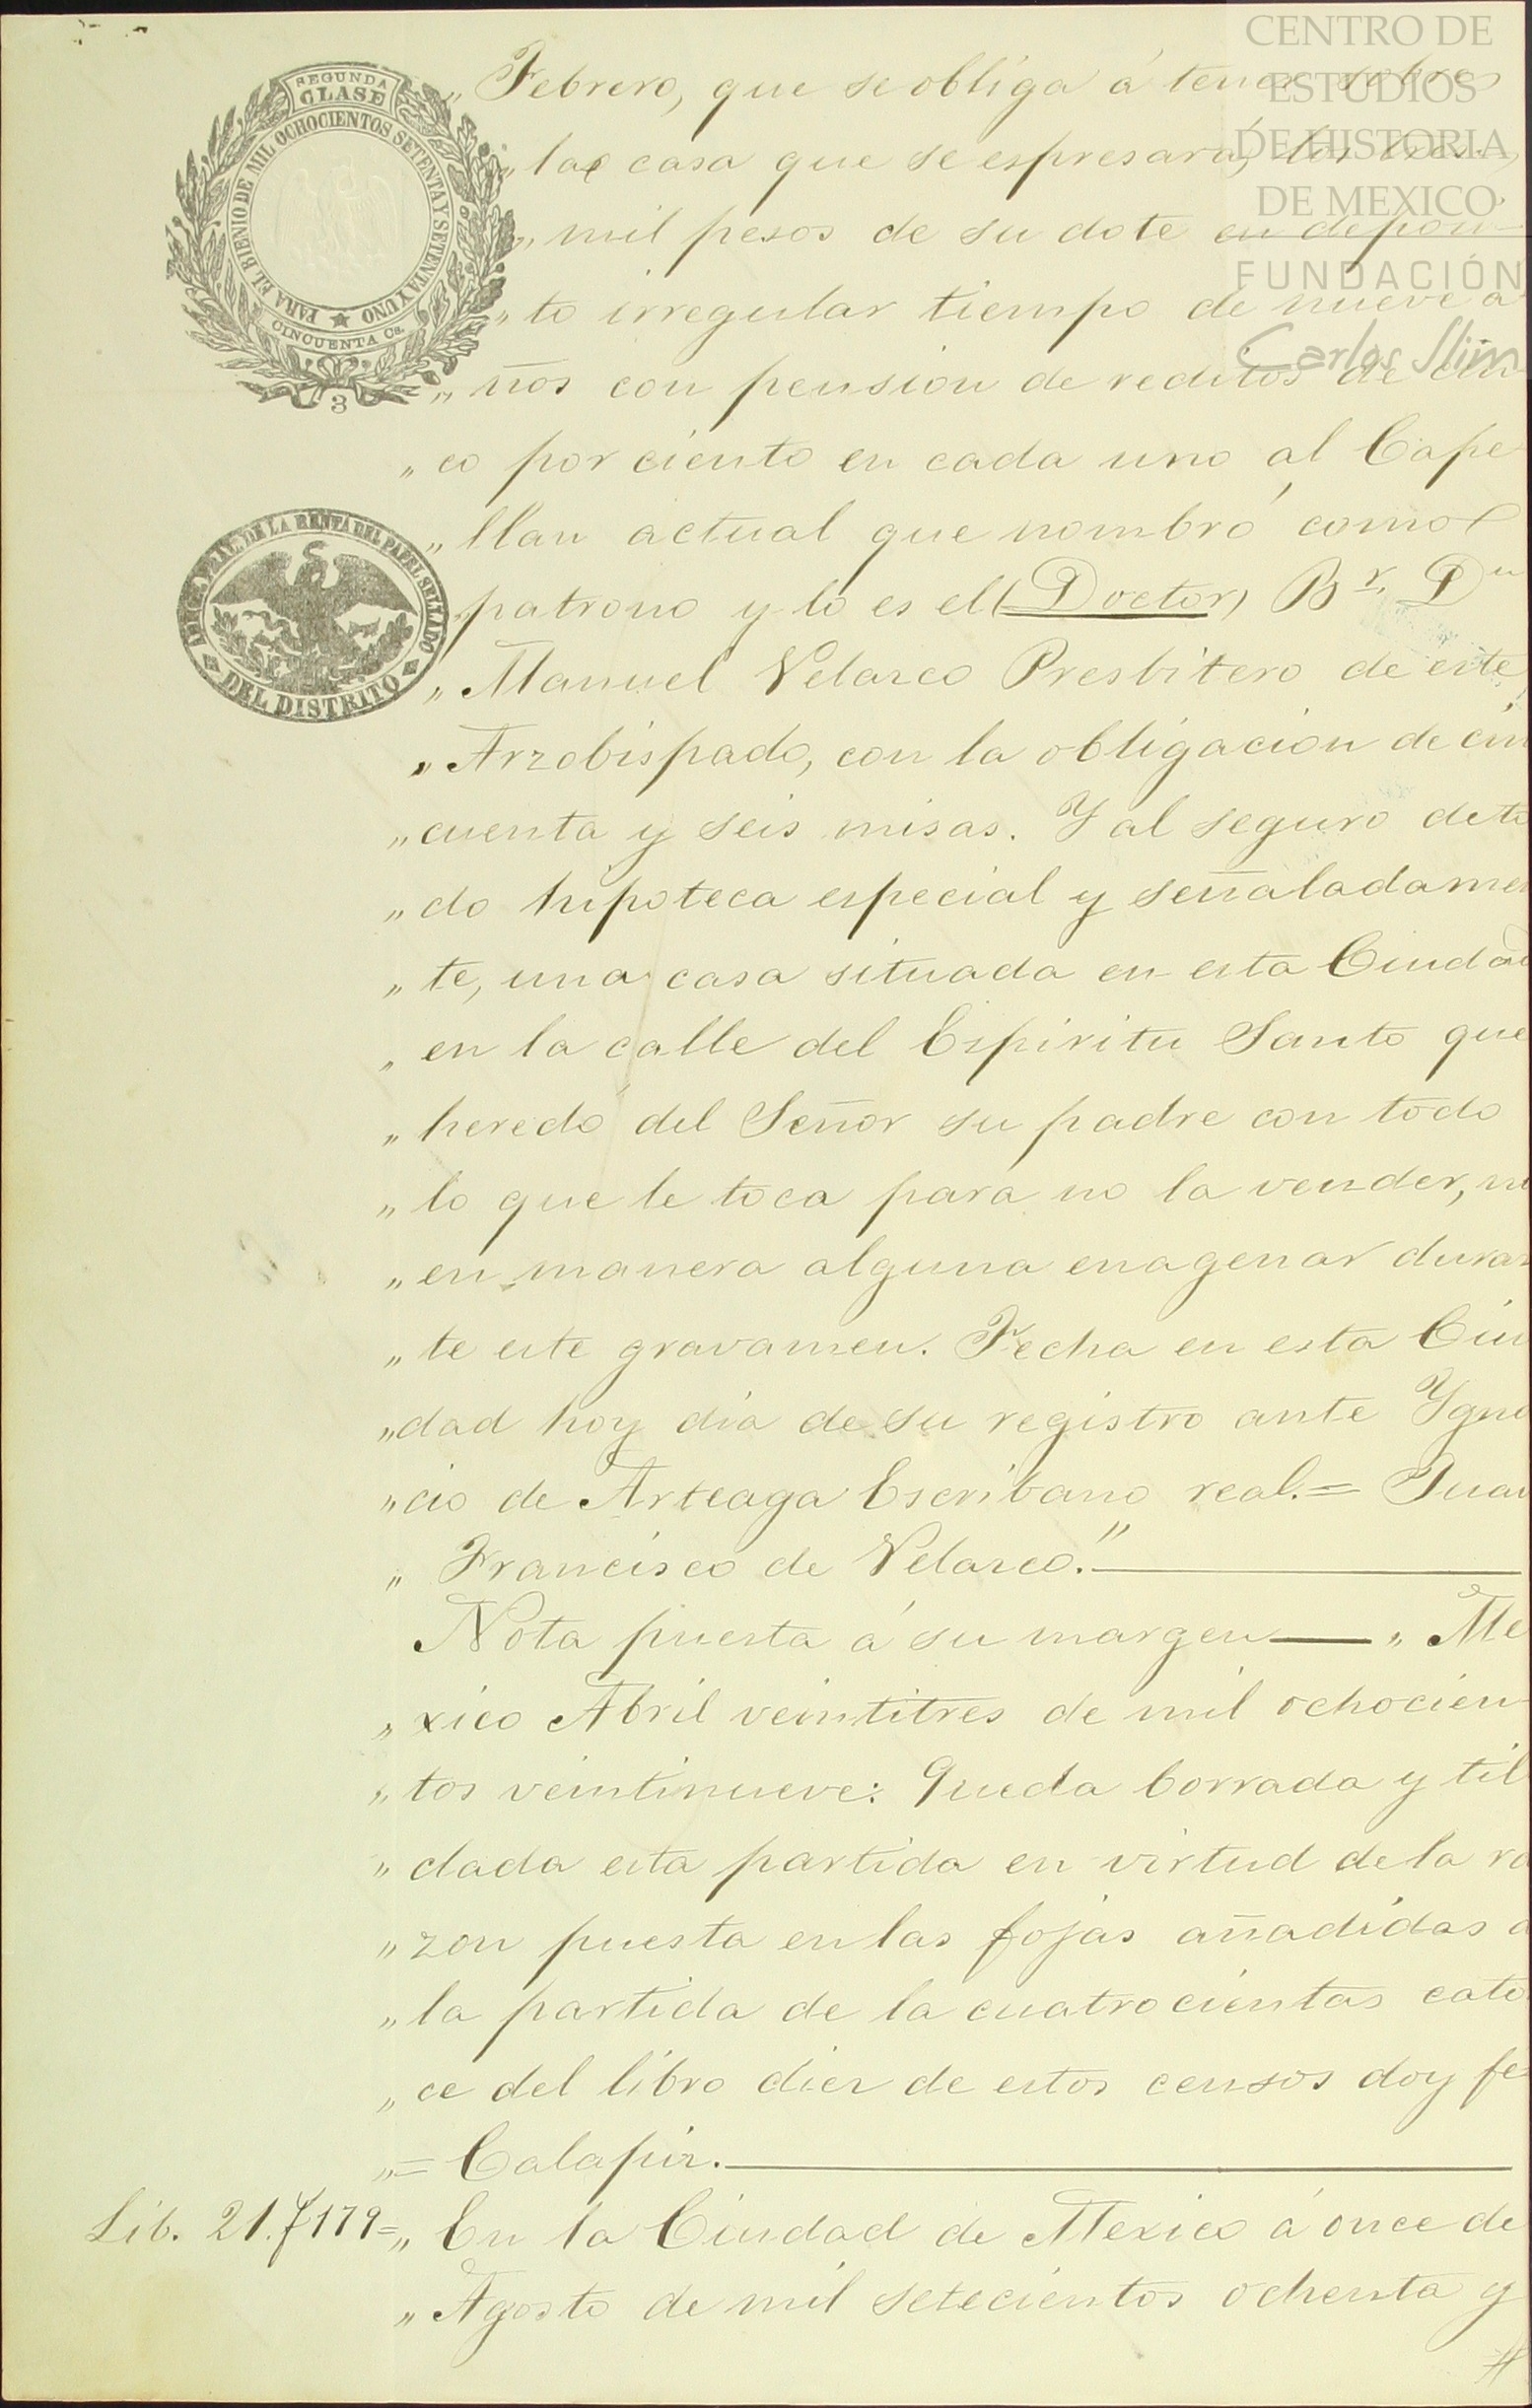 CENTRO DE
ESTUDIOS
DE HISTORIA
DE MEXICO
FUNDACIÓN
Carlos Slim
SEGUNDA
CLASE
PARA EL BIENIO DE MIL OCHOCIENTOS SETENTA Y SETENTA Y UNO
CINCUENTA Cs.
3
ADMON. PRAL. DE LA RENTA DEL PAPEL SELLADO
DEL DISTRITO
„ Febrero, que se obliga á tener sobre
„ la casa que se espresará, los tres
„ mil pesos de su dote en deposi-
„ to irregular tiempo de nueve a
„ ños con pension de reditos de cin-
„ co por ciento en cada uno al Cape
„ llan actual que nombró como
„ patrono y lo es el (Doctor) Br. Dn
„ Manuel Velasco Presbitero de este
„ Arzobispado, con la obligacion de cin
„ cuenta y seis misas. Y al seguro de to
„ do hipoteca especial y señaladamen
„ te, una casa situada en esta Ciudad
„ en la calle del Espiritu Santo que
„ heredó del Señor su padre con todo
„ lo que le toca para no la vender, ni
„ en manera alguna enagenar duran
„ te este gravamen. Fecha en esta Ciu
„ dad hoy dia de su registro ante Ygna
„ cio de Arteaga Escribano real.= Juan
„ Francisco de Velasco."
Nota puesta á su margen — „ Me
„ xico Abril veintitres de mil ochocien-
„ tos veintinueve: Queda borrada y til
„ dada esta partida en virtud de la ra
„ zon puesta en las fojas añadidas a
„ la partida de la cuatrocientas cator
„ ce del libro diez de estos censos doy fe
„ = Calapiz.
Lib. 21. f 179= „ En la Ciudad de Mexico á once de
„ Agosto de mil setecientos ochenta y